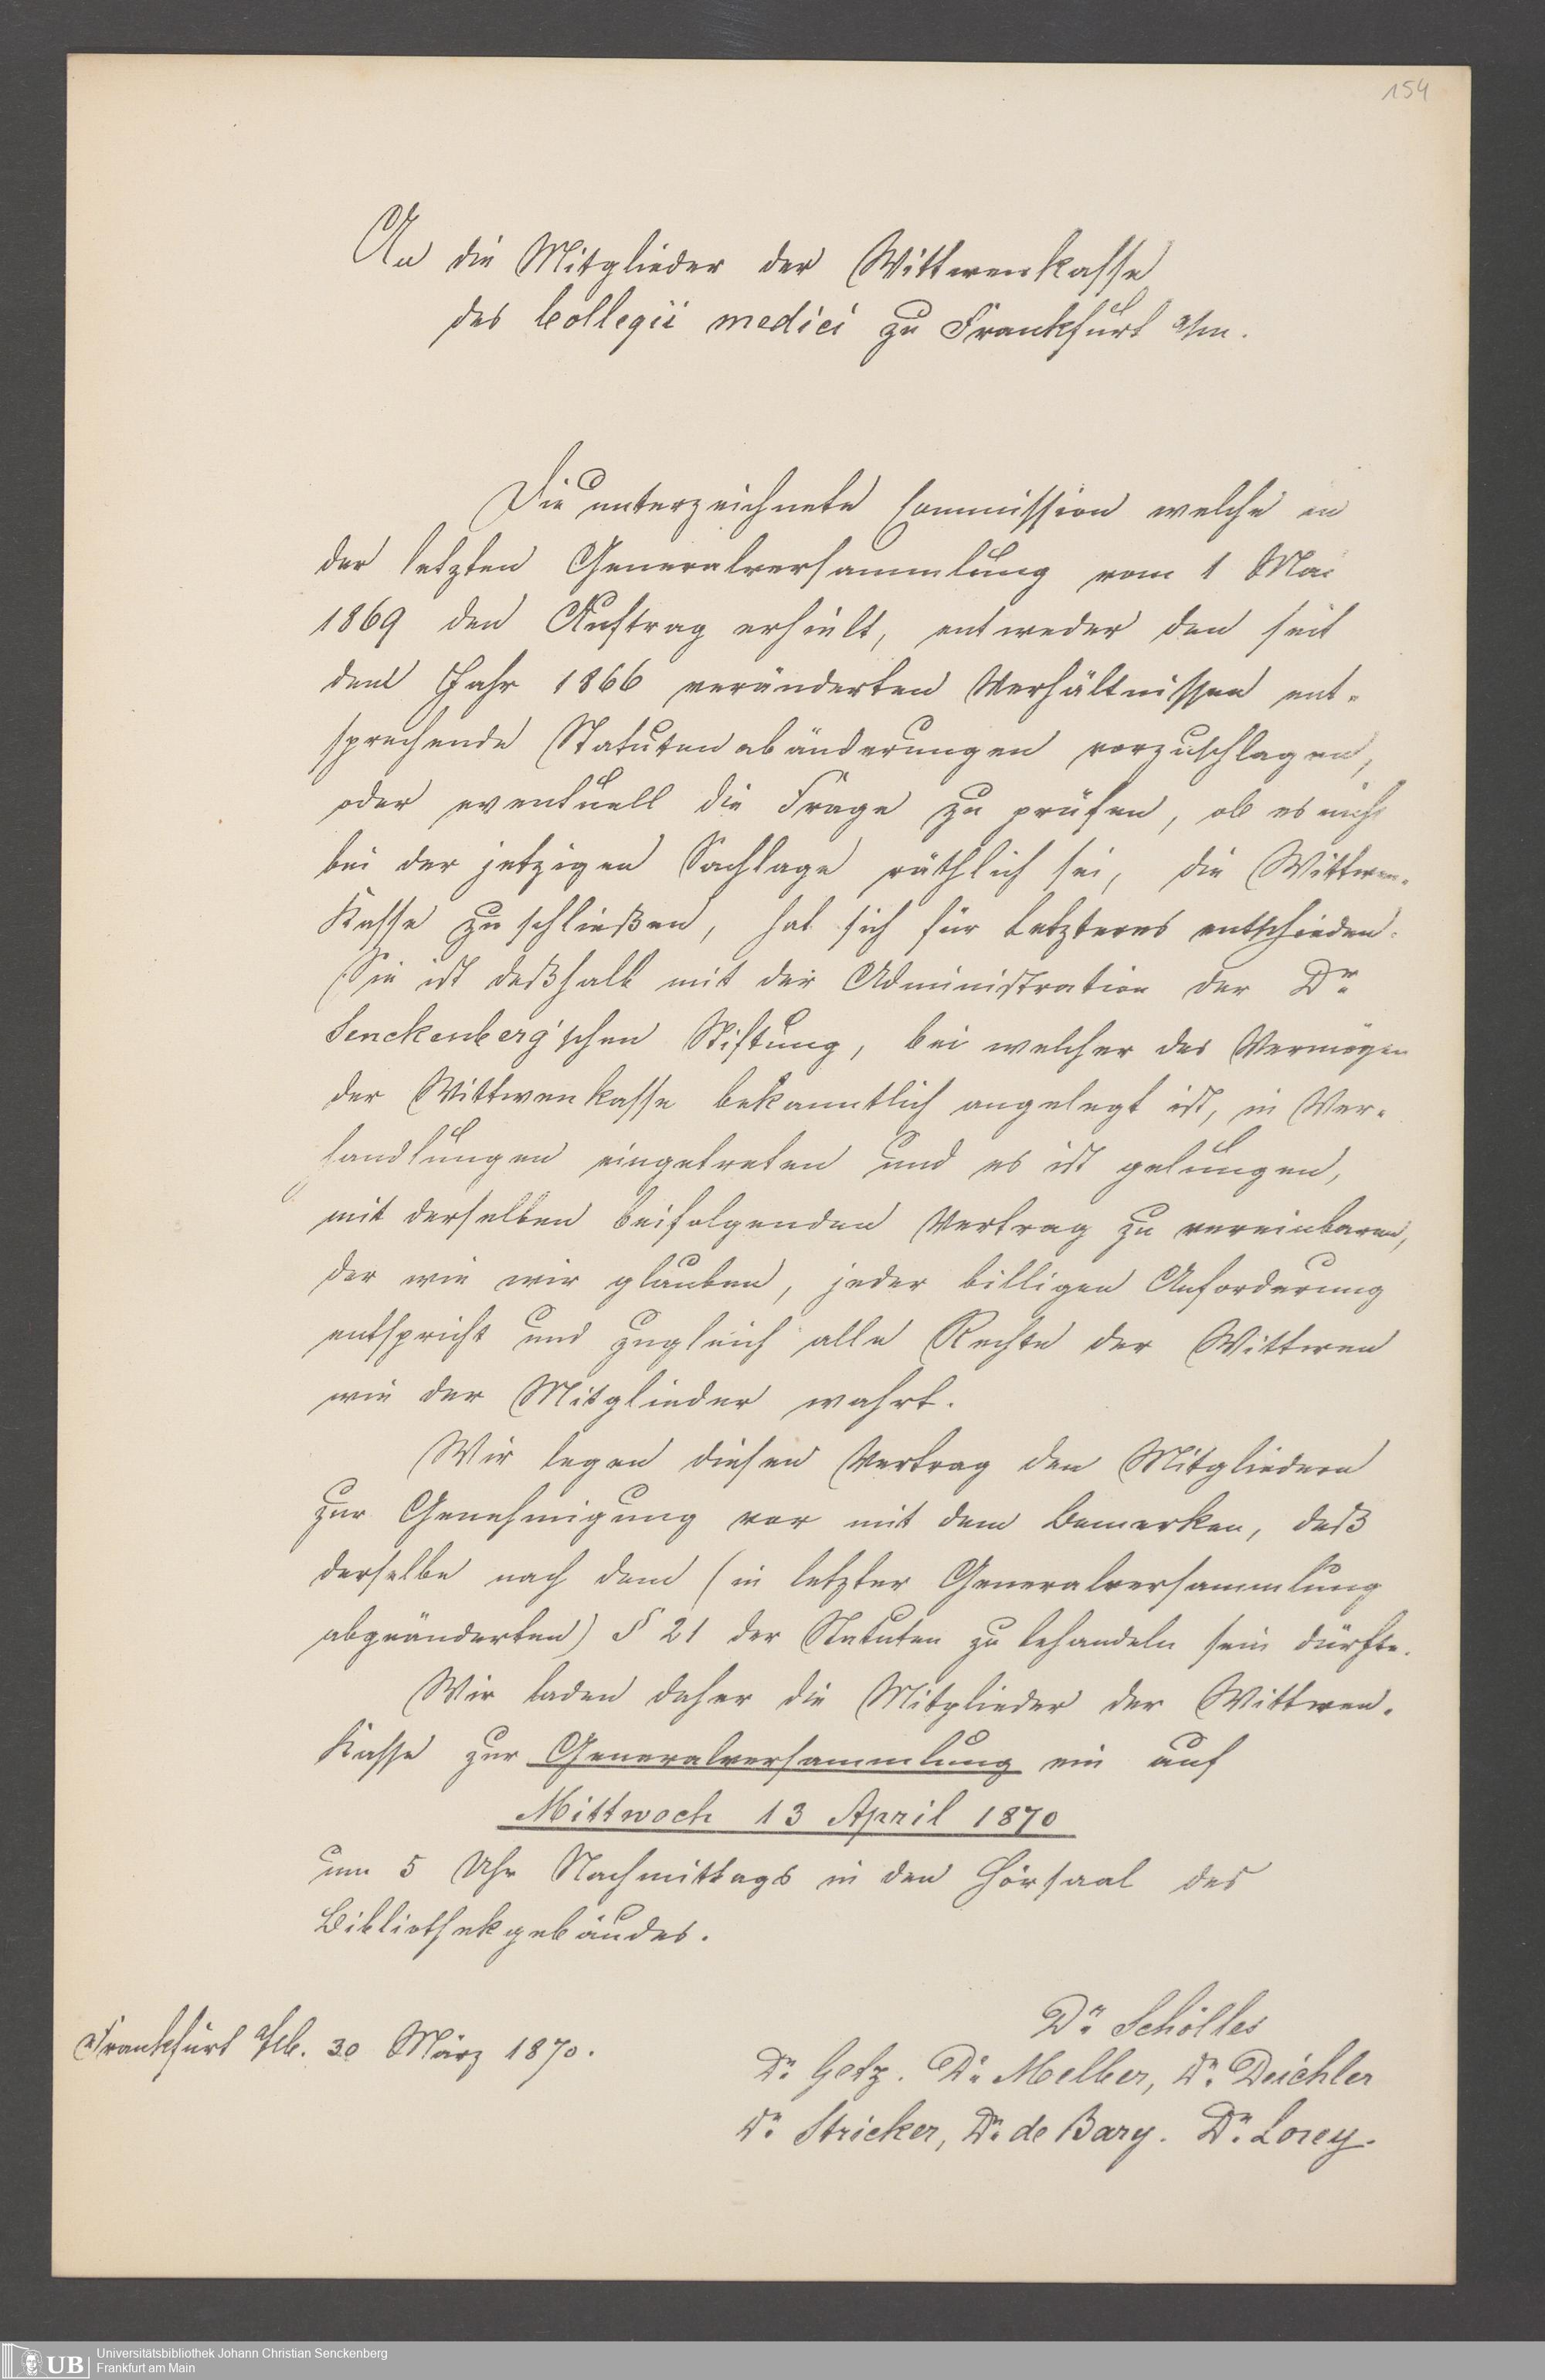 154
An die Mitglieder der Wittwenkasse
des Collegii medici zu Frankfurt a/m.
Die unterzeichnete Commission welche in
der letzten Generalversammlung vom 1 Mai
1869 den Auftrag erhielt, entweder den seit
dem Jahr 1866 veränderten Verhältnissen ent-
sprechende Statutenabänderungen vorzuschlagen,
oder eventuell die Frage zu prüfen, ob es nicht
bei der jetzigen Sachlage räthlich sei, die Wittwen-
Kasse zu schließen, hat sich für letzteres entschieden.
Sie ist deßhalb mit der Administration der Dr
Senckenberg'schen Stiftung, bei welcher das Vermögen
der Wittwenkasse bekanntlich angelegt ist, in Ver-
handlungen eingetreten und es ist gelungen,
mit derselben beifolgenden Vertrag zu vereinbaren,
der wie wir glauben, jeder billigen Anforderung
entspricht und zugleich alle Rechte der Wittwen
wie der Mitglieder wahrt.
Wir legen diesen Vertrag den Mitgliedern
zur Genehmigung vor mit dem Bemerken, daß
derselbe nach dem (in letzter Generalversammlung
abgeänderten) § 21 der Statuten zu behandeln sein dürfte.
Wir laden daher die Mitglieder der Wittwen-
Kasse zur Generalversammlung ein auf
Mittwoch 13 April 1870
um 5 Uhr Nachmittags in den Hörsaal des
Bibliothekgebäudes.
Frankfurt a/M. 30 März 1870.
Dr Schölles
Dr Getz. Dr Melber, Dr Deichler
Dr Stricker, Dr de Bary. Dr Lorey.
UB
Universitätsbibliothek Johann Christian Senckenberg
Frankfurt am Main